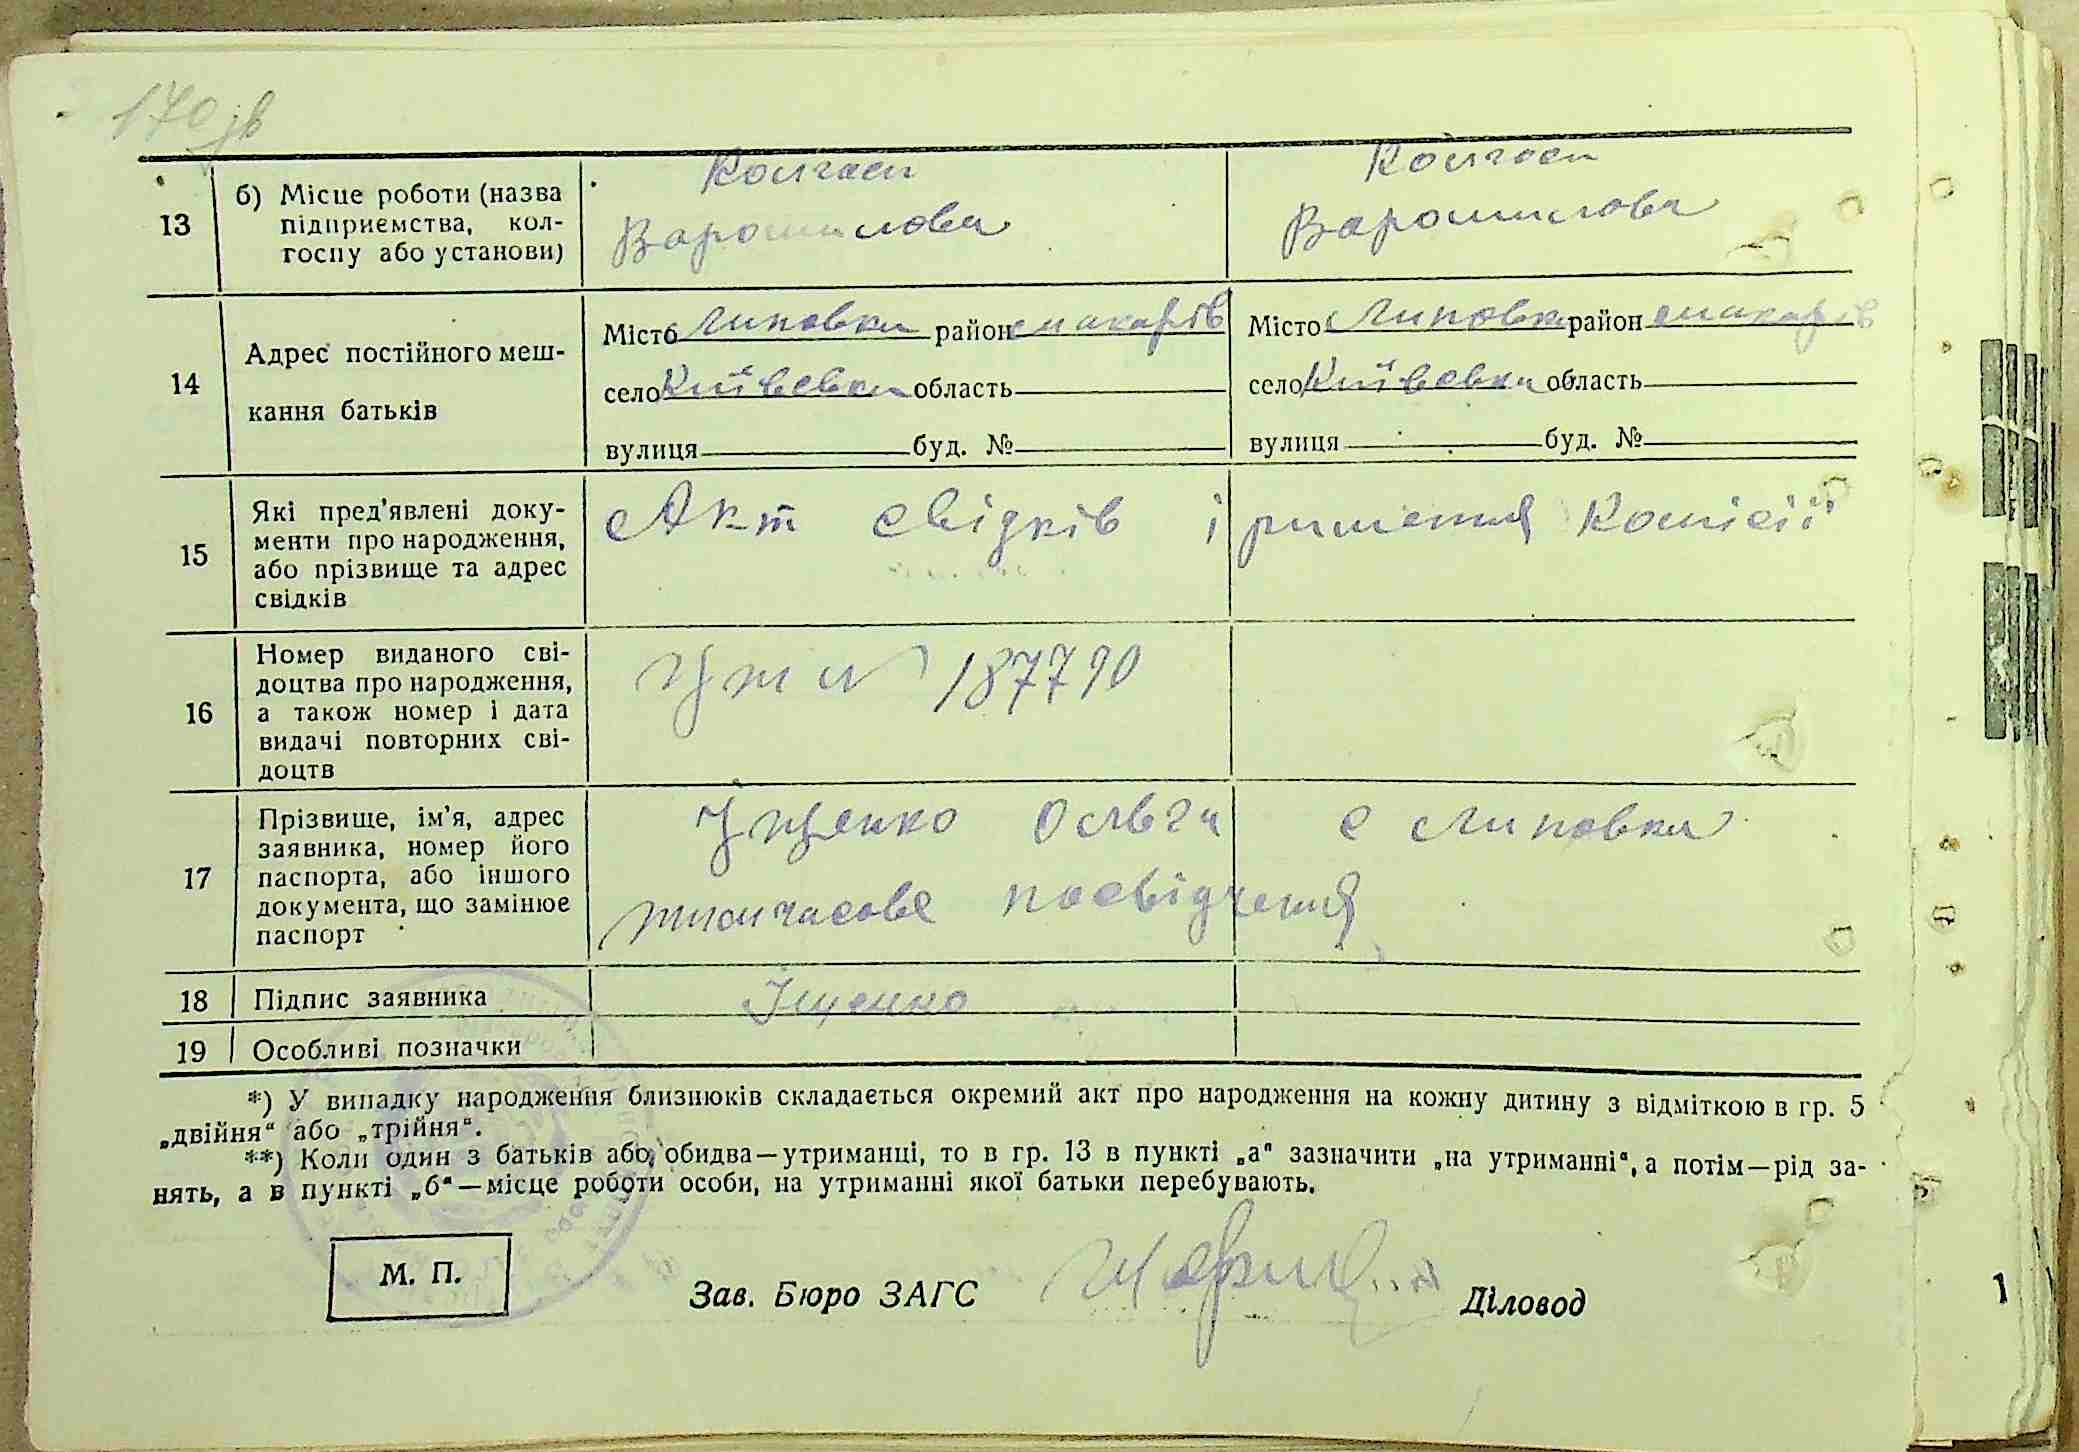 170 зв
13 б) Місце роботи (назва Колгосп Колгосп
підприємства, кол- Варошилова Варошилова
госпу або установи)
14 Адрес постійного меш- Місто Липовка район Макарів Місто Липовка район Макарів
кання батьків село Київська область село Київська область
вулиця буд. № вулиця буд. №
15 Які пред'явлені доку- Акт свідків і ришення комісії
менти про народження,
або прізвище та адрес
свідків
16 Номер виданого сві- № 187790
доцтва про народження,
а також номер і дата
видачі повторних сві-
доцтв
17 Прізвище, ім'я, адрес Іщенко Ольга с Липовка
заявника, номер його
паспорта, або іншого тимчасове посвідчення
документа, що замінює
паспорт
18 Підпис заявника Іщенко
19 Особливі позначки
*) У випадку народження близнюків складається окремий акт про народження на кожну дитину з відміткою в гр. 5
„двійня“ або „трійня“.
**) Коли один з батьків або обидва—утриманці, то в гр. 13 в пункті „а“ зазначити „на утриманні“, а потім—рід за-
нять, а в пункті „б“—місце роботи особи, на утриманні якої батьки перебувають.
М. П.
Зав. Бюро ЗАГС Діловод
1